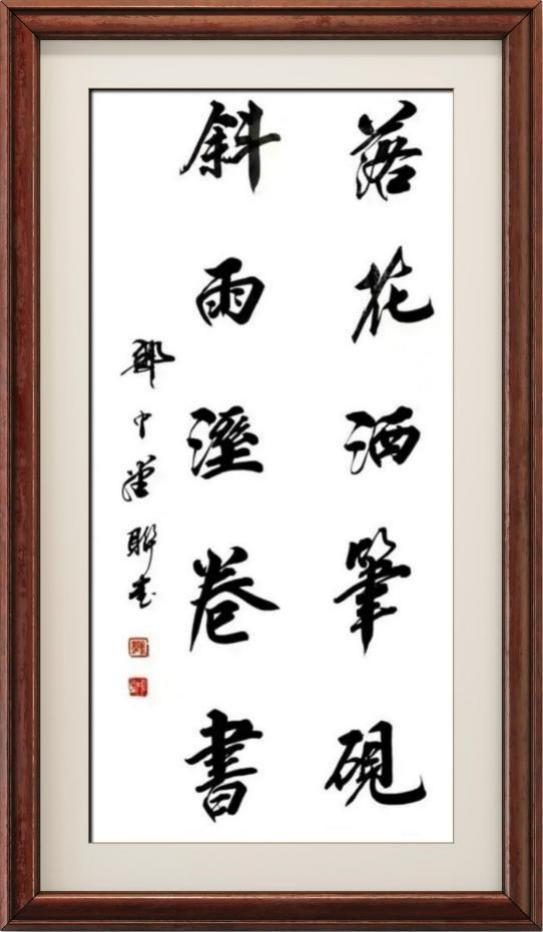 落花洒筆硯
斜雨溼卷書
鄧中肇聯書